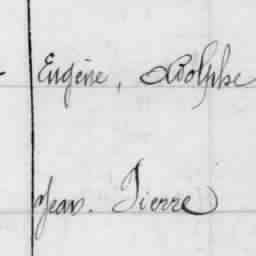 Eugène, Adolphe
Jean. Pierre